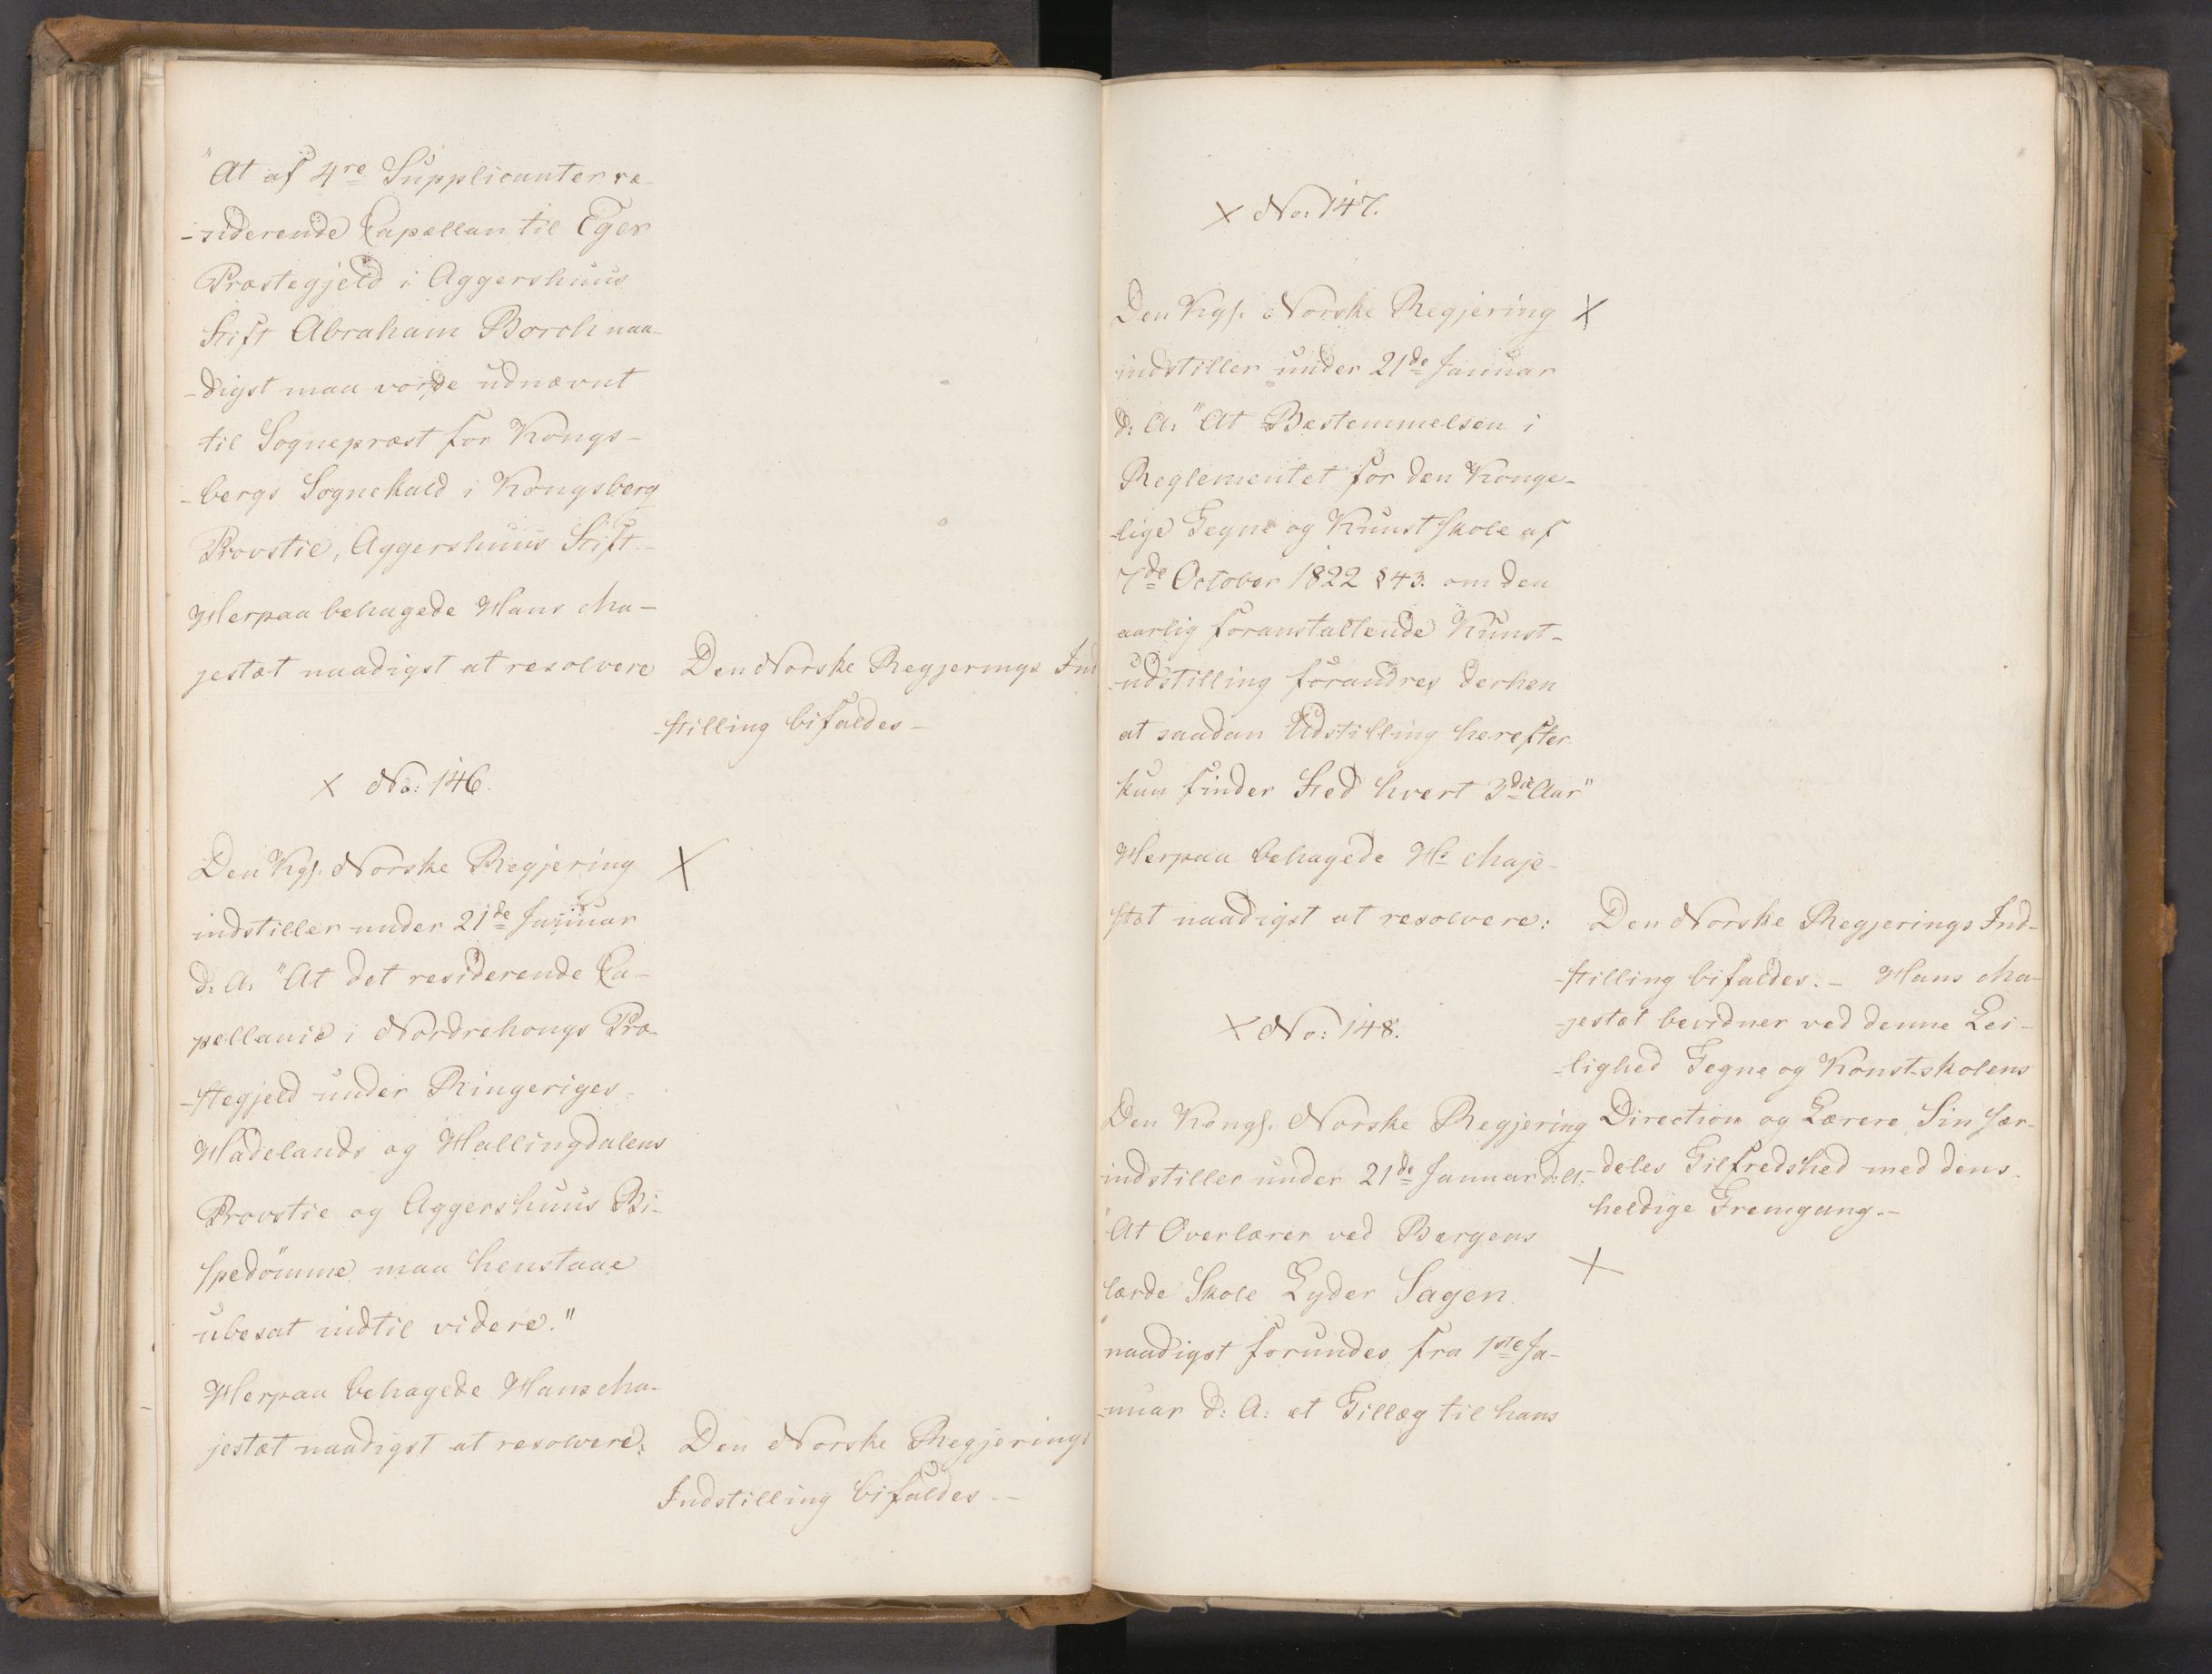 "At af 4re Supplicanter re-
-siderende Capellan til Eger
Præstegjeld i Aggershuus
Stift Abraham Borch naa-
-digst maa vorde udnævnt
til Sognepræst for Kongs-
-bergs Sognekald i Kongsberg
Provstie, Aggershuus Stift.-
Herpaa behagede Hans Ma-
jestæt naadigst at resolvere
Den Norske Regjerings Ind
-stilling bifaldes-
X No: 146.
Den Kgl. Norske Regjering X
indstiller under 21de Januar
d: A: "At det residerende Ca-
pellanie i Nordrehougs Præ-
-stegjeld under Ringeriges,
Hadelands og Hallingdalens
Provstie og Aggershuus Bi-
spedömme maa henstaae
ubesat indtil videre."
Herpaa behagede Hans Ma-
jestæt naadigst at resolvere:
Den Norske Regjerings
Indstilling bifaldes.-
X No: 147.
Den Kgl. Norske Regjering X
indstiller under 21de Januar
d: A: "At Bestemmelsen i
Reglementet for den Konge-
-lige Tegne og Kunstskole af
7de October 1822 § 43. om den
aarlig foranstaltende Kunst-
-udstilling forandres derhen
at saadan Udstilling herefter
kun finder Sted hvert 3die Aar"
Herpaa behagede Hs Maje-
stæt naadigst at resolvere:
Den Norske Regjerings Ind-
-stilling bifaldes.- Hans Ma-
-jestæt bevidner ved denne Lei-
-lighed Tegne og Konst-skolens
Direction og Lærere Sin sær-
-deles Tilfredshed med dens
heldige Fremgang.-
X No: 148.
Den Kongl. Norske Regjering
indstiller under 21de Januar d: A:
"At Overlærer ved Bergens
lærde Skole Lyder Sagen X
"naadigst forundes fra 1ste Ja-
-nuar d: A: et Tillæg til hans